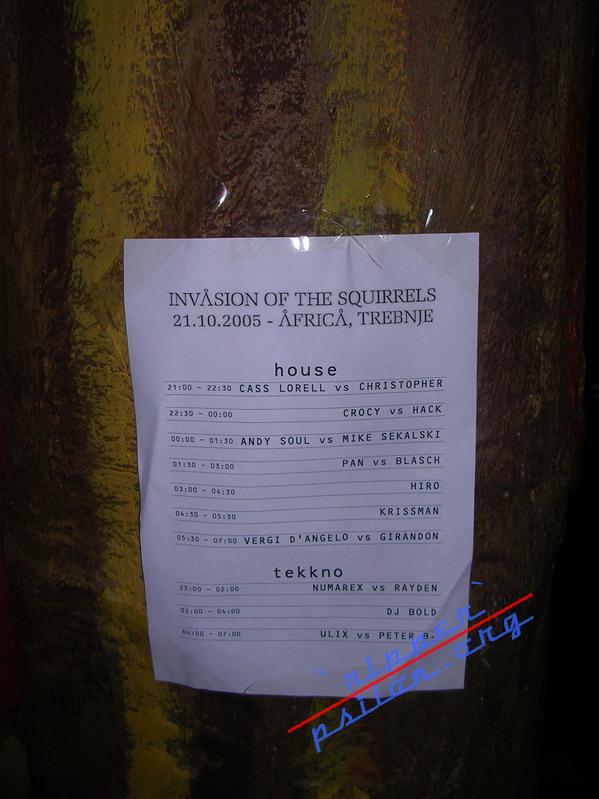 INVÅSION OF THE SQUIRRELS
21.10.2005 - ÅFRICÅ, TREBNJE
house
21:00 - 22:30 CASS LORELL vs CHRISTOPHER
22:30 - 00:00 CROCY vs HACK
00:00 - 01:30 ANDY SOUL vs MIKE SEKALSKI
01:30 - 03:00 PAN vs BLASCH
03:00 - 04:30 HIRO
04:30 - 05:30 KRISSMAN
05:30 - 07:00 VERGI D'ANGELO vs GIRANDON
tekkno
23:00 - 02:00 NUMAREX vs RAYDEN
02:00 - 04:00 DJ BOLD
04:00 - 07:00 ULIX vs PETER B.
`ripper`
psilon.org